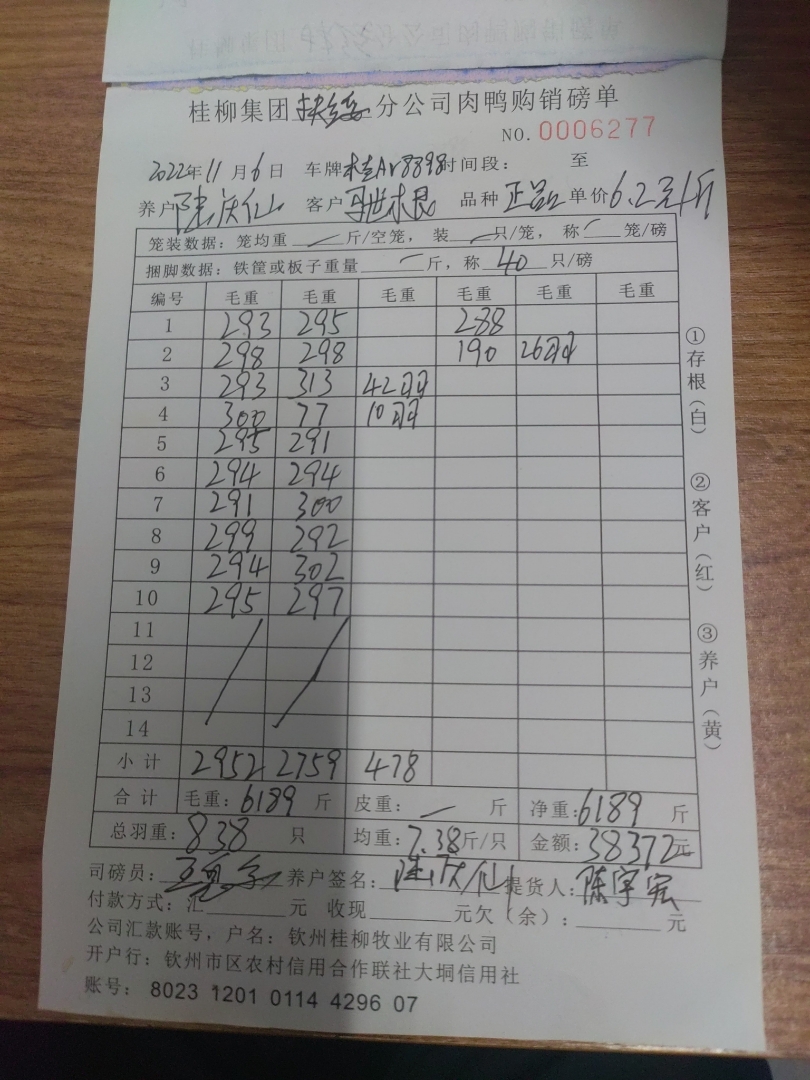 桂柳集团扶绥分公司肉鸭购销磅单
NO. 0006277
2022年11月6日 车牌桂Ar8898时间段： 至
养户陈庆仙 客户 木良 品种 正品 单价6.2元/斤
笼装数据：笼均重 斤/空笼， 装 只/笼， 称 笼/磅
捆脚数据：铁筐或板子重量 斤，称 40 只/磅
编号 毛重 毛重 毛重 毛重 毛重 毛重
1 293 295 288
2 298 298 190 26羽
3 293 313 42羽
4 300 77 10羽
5 295 291
6 294 294
7 291 300
8 299 292
9 294 302
10 295 297
11
12
13
14
小计 2952 2759 478
合计 毛重：6189 斤 皮重： 斤 净重：6189 斤
总羽重：838 只 均重：7.38斤/只 金额：38372元
司磅员： 养户签名：陈庆仙 提货人：陈宇宏
付款方式：汇 元 收现 元欠（余）： 元
公司汇款账号，户名：钦州桂柳牧业有限公司
开户行：钦州市区农村信用合作联社大垌信用社
账号： 8023 1201 0114 4296 07
①存根（白） ②客户（红） ③养户（黄）